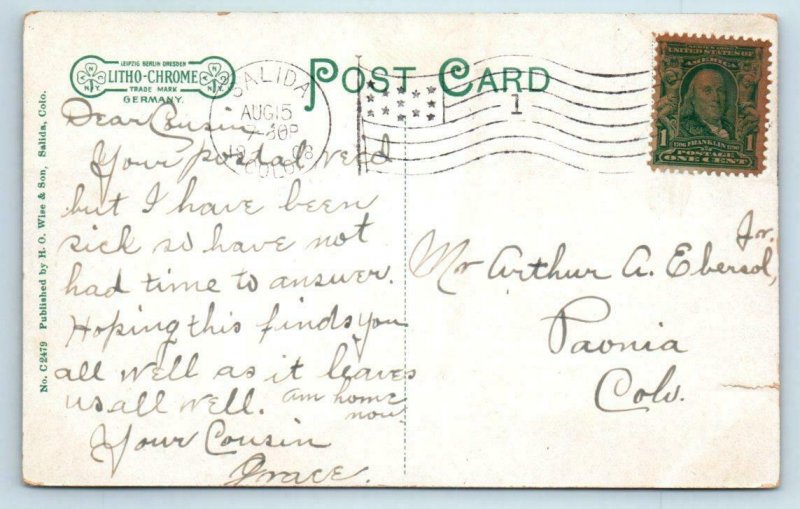 LEIPZIG BERLIN DRESDEN
LITHO-CHROME
TRADE MARK
GERMANY.
N.Y.
N.Y.
POST CARD
SALIDA
AUG 15
7-30P
1908
COLO.
1
SERIES 1902
UNITED STATES OF
AMERICA
1
1
1706 FRANKLIN 1790
POSTAGE
ONE CENT
No. C 2479 Published by H. O. Wise & Son, Salida, Colo.
Dear Cousin
Your postal rec'd
but I have been
sick so have not
had time to answer.
Hoping this finds you
all well as it leaves
us all well. am home
now.
Your Cousin
Grace.
Mr Arthur A. Ebersol, Jr.
Paonia
Colo.